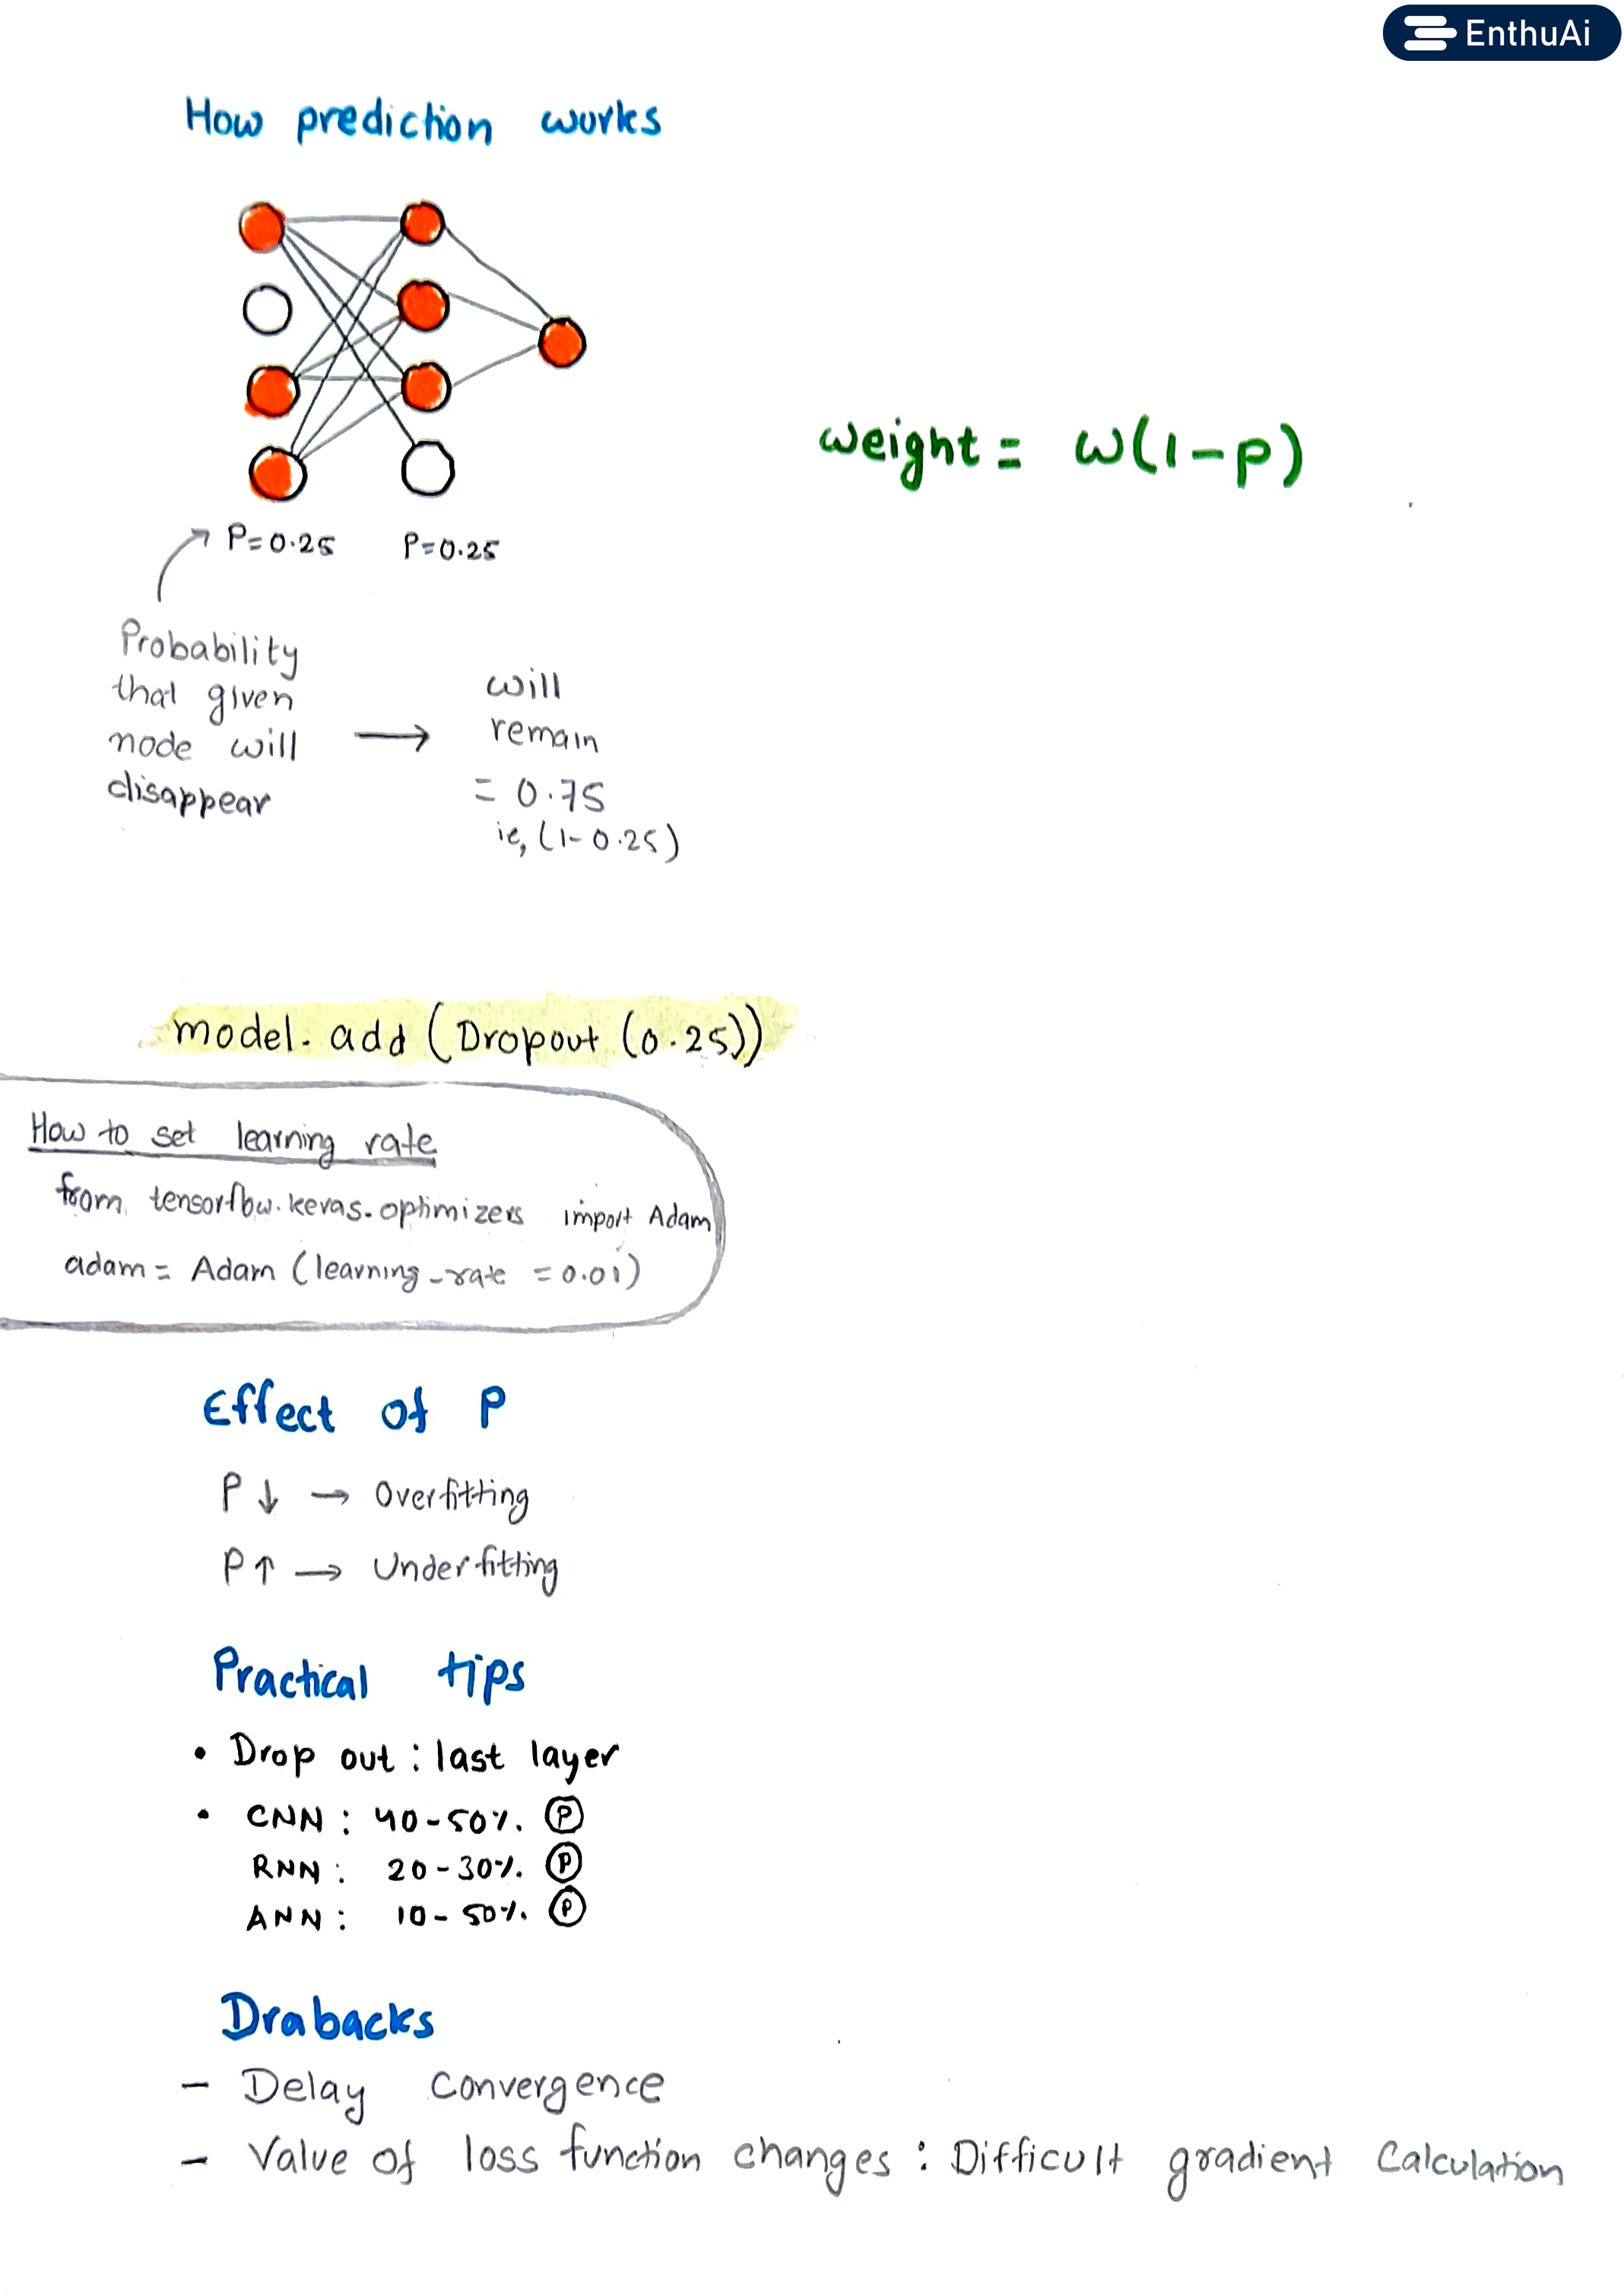 EnthuAi
How prediction works
weight = w(1-p)
P=0.25 P=0.25
Probability
that given
node will
disappear
→ will
remain
= 0.75
ie, (1-0.25)
model.add(Dropout(0.25))
How to set learning rate
from tensorflow.keras.optimizers import Adam
adam = Adam (learning_rate = 0.01)
Effect of P
P ↓ → Overfitting
P ↑ → Underfitting
Practical tips
• Drop out : last layer
• CNN : 40-50% Ⓟ
RNN : 20-30% Ⓟ
ANN : 10-50% Ⓟ
Drabacks
- Delay convergence
- Value of loss function changes : Difficult gradient Calculation